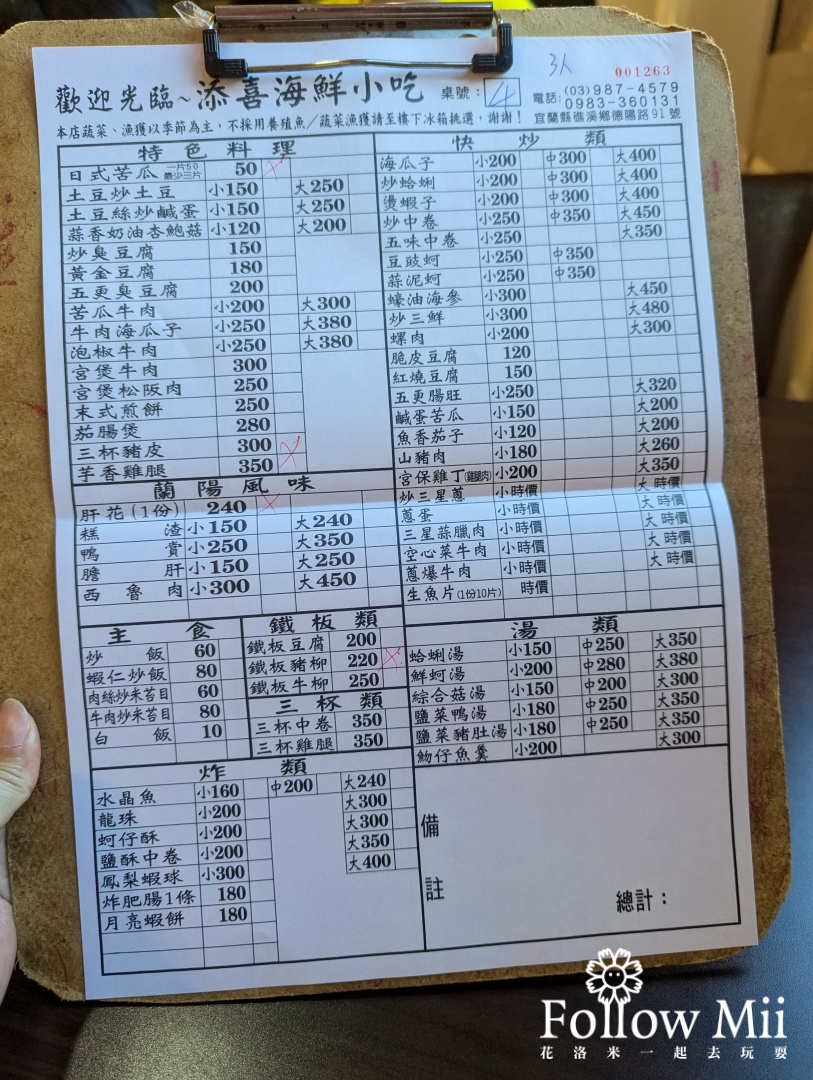 3人
001263
歡迎光臨~添喜海鮮小吃 桌號: 4 電話:(03)987-4579
0983-360131
本店蔬菜、漁獲以季節為主,不採用養殖魚/蔬菜漁獲請至樓下冰箱挑選,謝謝! 宜蘭縣礁溪鄉德陽路91號
特色料理
日式苦瓜 一片50 最少三片 50
土豆炒土豆 小150 大250
土豆絲炒鹹蛋 小150 大250
蒜香奶油杏鮑菇 小120 大200
炒臭豆腐 150
黃金豆腐 180
五更臭豆腐 200
苦瓜牛肉 小200 大300
牛肉海瓜子 小250 大380
泡椒牛肉 小250 大380
宮煲牛肉 300
宮煲松阪肉 250
末式煎餅 250
茄腸煲 280
三杯豬皮 300
芋香雞腿 350
蘭陽風味
肝花(1份) 240
糕渣 小150 大240
鴨賞 小250 大350
膽肝 小150 大250
西魯肉 小300 大450
主食
炒飯 60
蝦仁炒飯 80
肉絲炒米苔目 60
牛肉炒米苔目 80
白飯 10
鐵板類
鐵板豆腐 200
鐵板豬柳 220
鐵板牛柳 250
三杯類
三杯中卷 350
三杯雞腿 350
炸類
水晶魚 小160 中200 大240
龍珠 小200 大300
蚵仔酥 小200 大300
鹽酥中卷 小200 大350
鳳梨蝦球 小300 大400
炸肥腸1條 180
月亮蝦餅 180
快炒類
海瓜子 小200 中300 大400
炒蛤蜊 小200 中300 大400
燙蝦子 小200 中300 大400
炒中卷 小250 中350 大450
五味中卷 小250 大350
豆豉蚵 小250 中350
蒜泥蚵 小250 中350
蠔油海參 小300 大450
炒三鮮 小300 大480
螺肉 小200 大300
脆皮豆腐 120
紅燒豆腐 150
五更腸旺 小250 大320
鹹蛋苦瓜 小150 大200
魚香茄子 小120 大200
山豬肉 小180 大260
宮保雞丁(雞腿肉) 小200 大350
炒三星蔥 小時價 大時價
蔥蛋 小時價 大時價
三星蒜臘肉 小時價 大時價
空心菜牛肉 小時價 大時價
蔥爆牛肉 小時價 大時價
生魚片(1份10片) 時價
湯類
蛤蜊湯 小150 中250 大350
鮮蚵湯 小200 中280 大380
綜合菇湯 小150 中200 大300
鹽菜鴨湯 小180 中250 大350
鹽菜豬肚湯 小180 中250 大350
魩仔魚羹 小200 大300
備註
總計:
Follow Mii
花洛米一起去玩耍